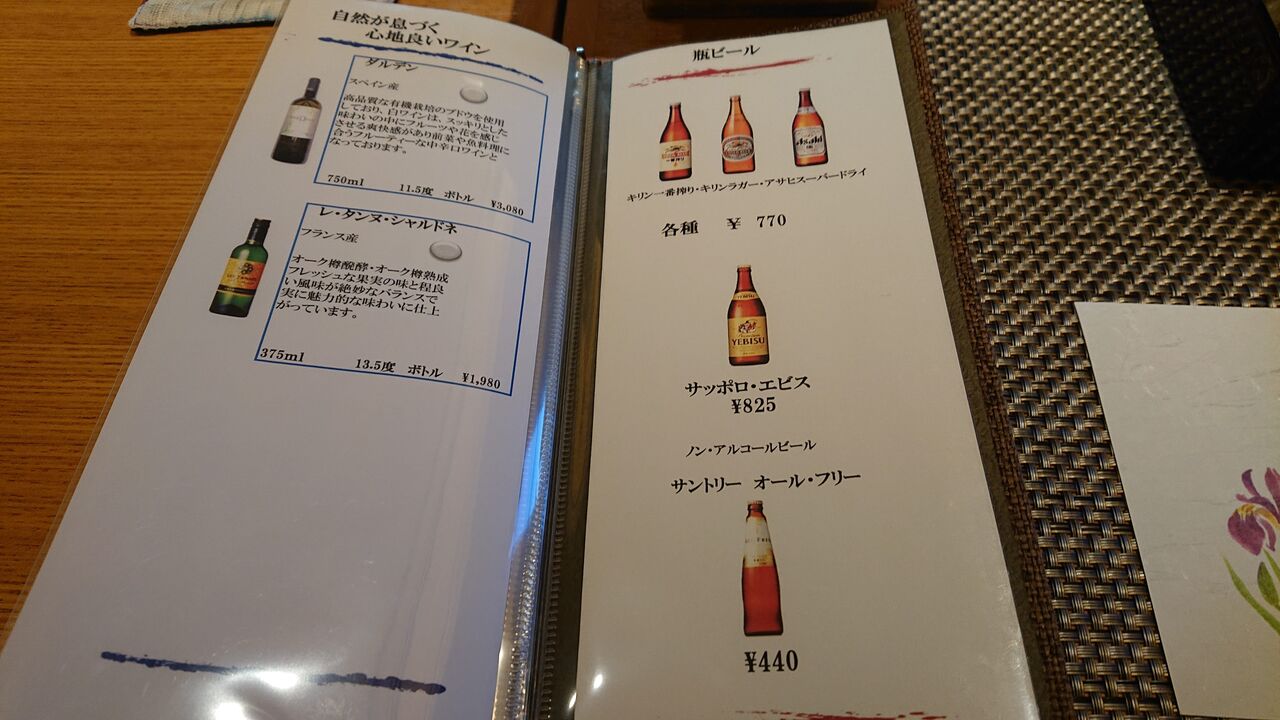 自然が息づく
心地良いワイン
ダルデン
スペイン産
高品質な有機栽培のブドウを使用
しており、白ワインは、スッキリとした
味わいの中にフルーツや花を感じ
させる爽快感があり前菜や魚料理に
合うフルーティーな中辛口ワインと
なっております。
750ml 11.5度 ボトル ¥3,080
レ・タンヌ・シャルドネ
フランス産
オーク樽醗酵・オーク樽熟成
フレッシュな果実の味と程良
い風味が絶妙なバランスで
実に魅力的な味わいに仕上
がっています。
375ml 13.5度 ボトル ¥1,980
瓶ビール
一番搾り
Asahi
キリン一番搾り・キリンラガー・アサヒスーパードライ
各種 ¥ 770
YEBISU
サッポロ・エビス
¥825
ノン・アルコールビール
サントリー オール・フリー
¥440